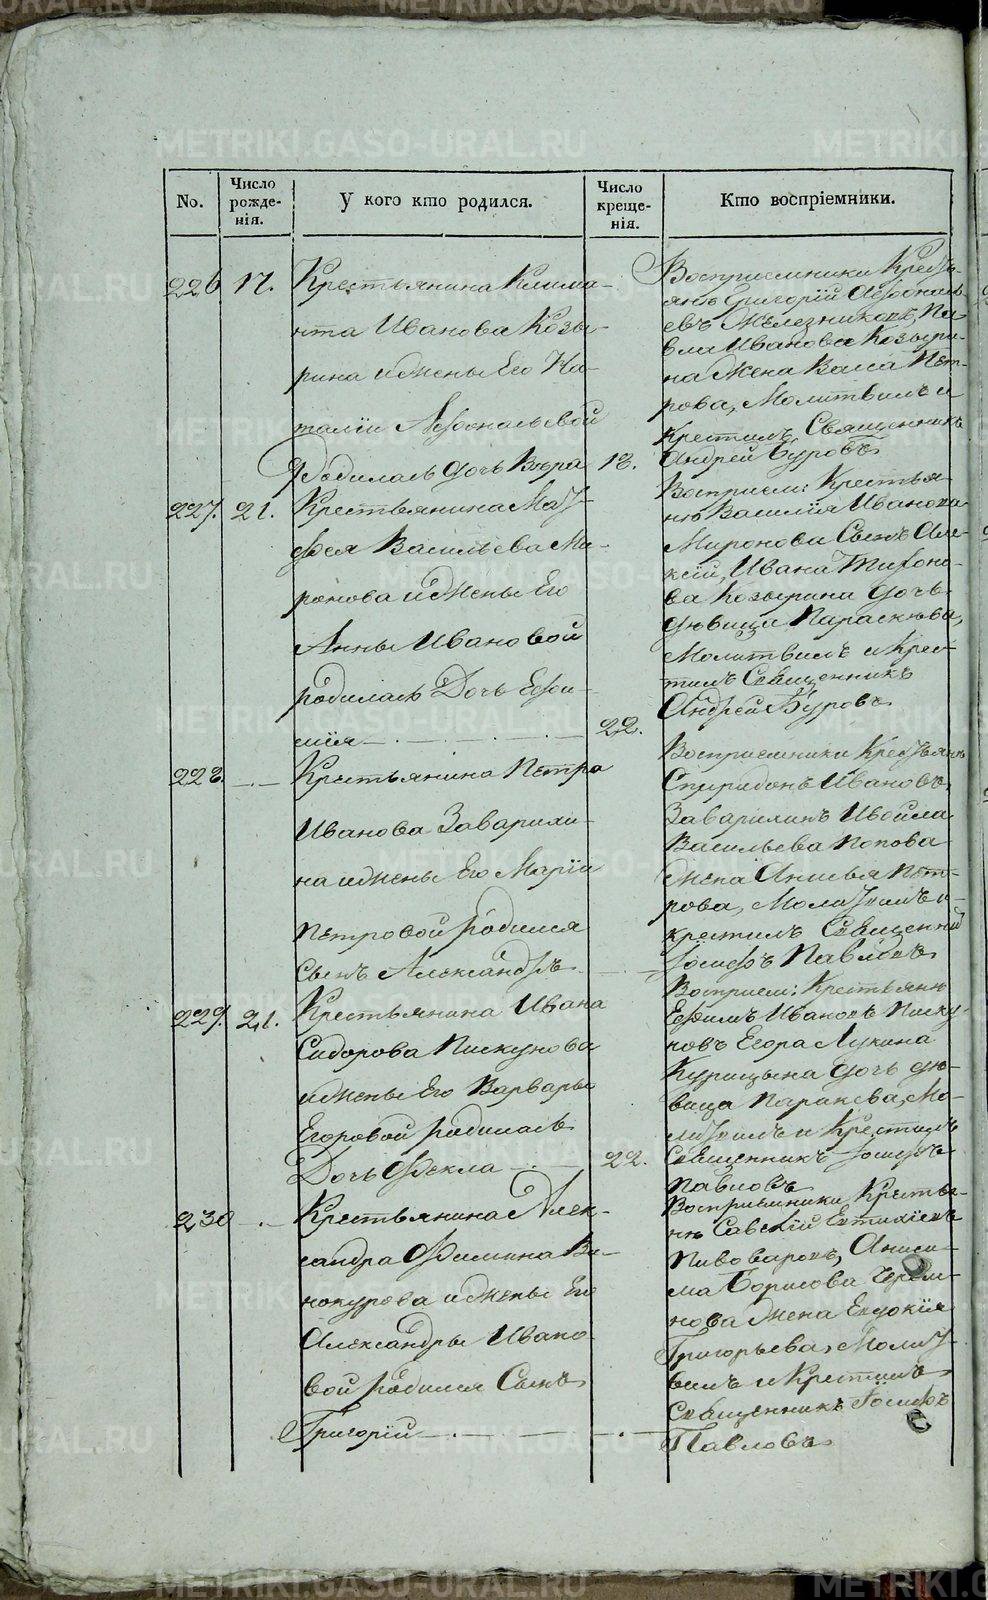 METRIKI.GASO-URAL.RU
No.
Число рожде-нія.
У кого кто родился.
Число креще-нія.
Кто воспріемники.
226
17.
Крестьянина Клима-
нта Иванова Козы-
рина и жены Его На-
таліи Афонасьевой
родилась дочь Вѣра
18.
Восприемники Кресть-
янъ Григорій Афонась
евъ Железниковъ, Па-
вла Иванова Козыри-
на жена Васса Пет-
рова, Молитвилъ и
крестилъ Священникъ
Андрей Буровъ
227.
21.
Крестьянина Мат-
фея Васильева Ми-
ронова и жены Его
Анны Ивановой
родилась Дочь Ефи-
мия
22.
Восприем: Крестья-
нъ Василия Иванова
Миронова Сынъ Але-
ксій, Ивана Тихоно-
ва Козырина дочь
девица Параскева,
Молитвилъ и Крес-
тилъ Священникъ
Андрей Буровъ
228.
Крестьянина Петра
Иванова Заварихи-
на и жены Его Маріи
Петровой родился
сынъ Александръ
Восприемники Крестьянъ
Спиридонъ Ивановъ
Заварихинъ
Васильева Попова
жена Анисья Пет-
рова, Молитвилъ и
крестилъ Священни
Іосифъ Павловъ
229.
21.
Крестьянина Ивана
Сидорова Пискунова
и жены Его Варвары
Егоровой родилась
Дочь Фекла
22.
Восприем: Крестьянъ
Ефимъ Ивановъ Писку
новъ Егора Лукина
Курицына дочь де-
вица Параксева, Мо-
литвилъ и Крестилъ
Священникъ Іосифъ
Павловъ
230
Крестьянина Алек-
сандра Филина Ви-
нокурова и жены Его
Александры Ивано-
вой родился Сынъ
Григорій
Восприемники Кресть-
нъ Савелій Евтихіевъ
Пивоваровъ, Аниси-
ма Борисова Черем-
нова жена Евдокія
Григорьева, Молит-
вилъ и Крестилъ
Священникъ Іосифъ
Павловъ